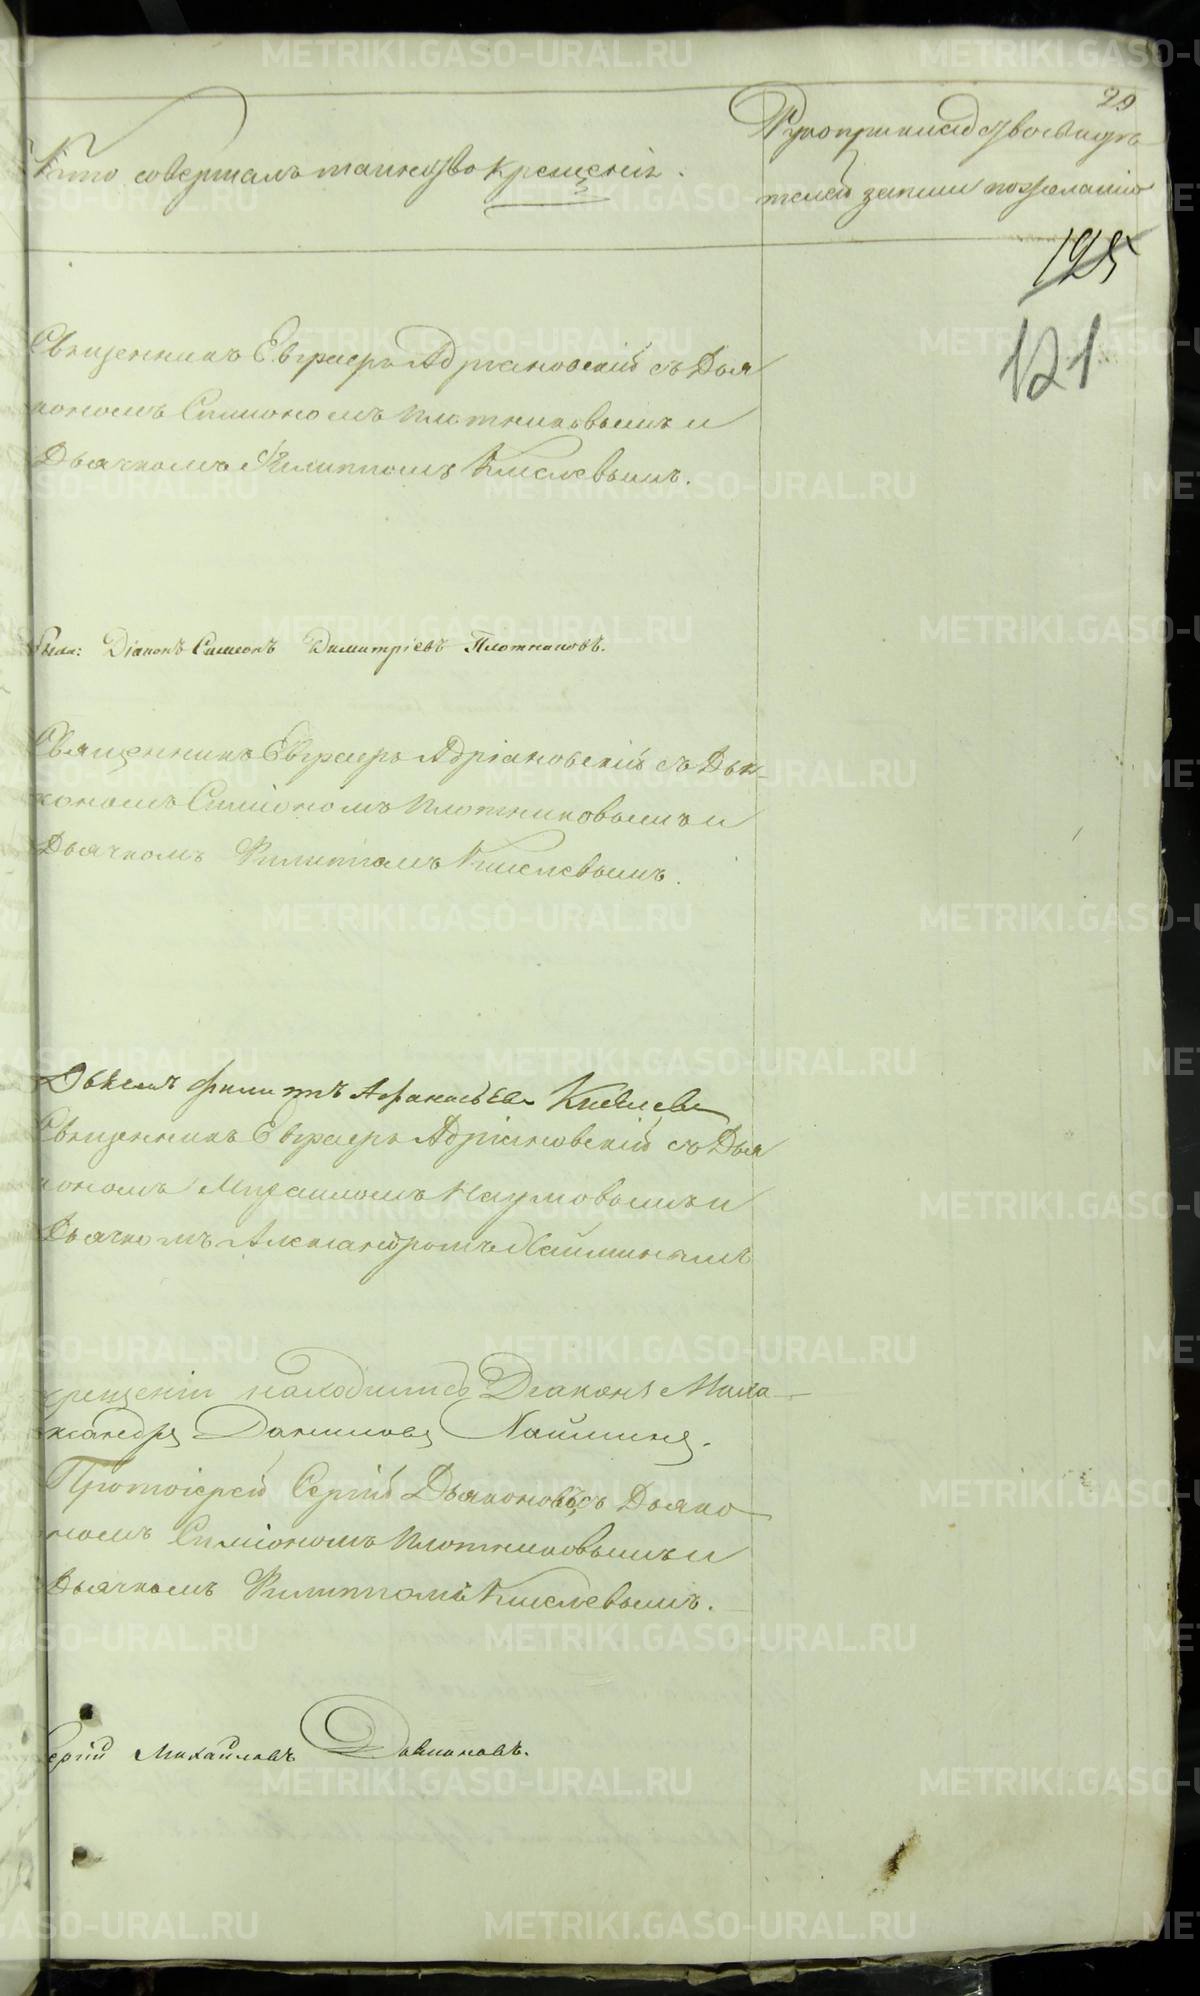 29
Кто совершалъ таинство крещенія.
Рукоприкладство свидѣ
телей записи по желанію
125
121
Священникъ Евграфъ Адріановскій съ Дья
кономъ Симіономъ Плотниковымъ и
Дьячкомъ Филиппомъ Киселевымъ.
были: Діаконъ Симеонъ Димитріевъ Плотниковъ.
Священникъ Евграфъ Адріановскій съ Дья-
кономъ Симіономъ Плотниковымъ и
Дьячкомъ Филиппомъ Киселевымъ.
Филиппъ Афанасьевъ Киселевъ
Священникъ Евграфъ Адріановскій съ Дья
кономъ Михаиломъ Наумовымъ и
Дьячкомъ Александромъ
крещеніи находились Діаконъ Миха-
ксандръ Даниловъ
Протоіерей Сергій Дьяконовъ съ Дьяко
номъ Симіономъ Плотниковымъ и
Дьячкомъ Филиппомъ Киселевымъ.
Сергій Михайловъ Дьяконовъ.
METRIKI.GASO-URAL.RU